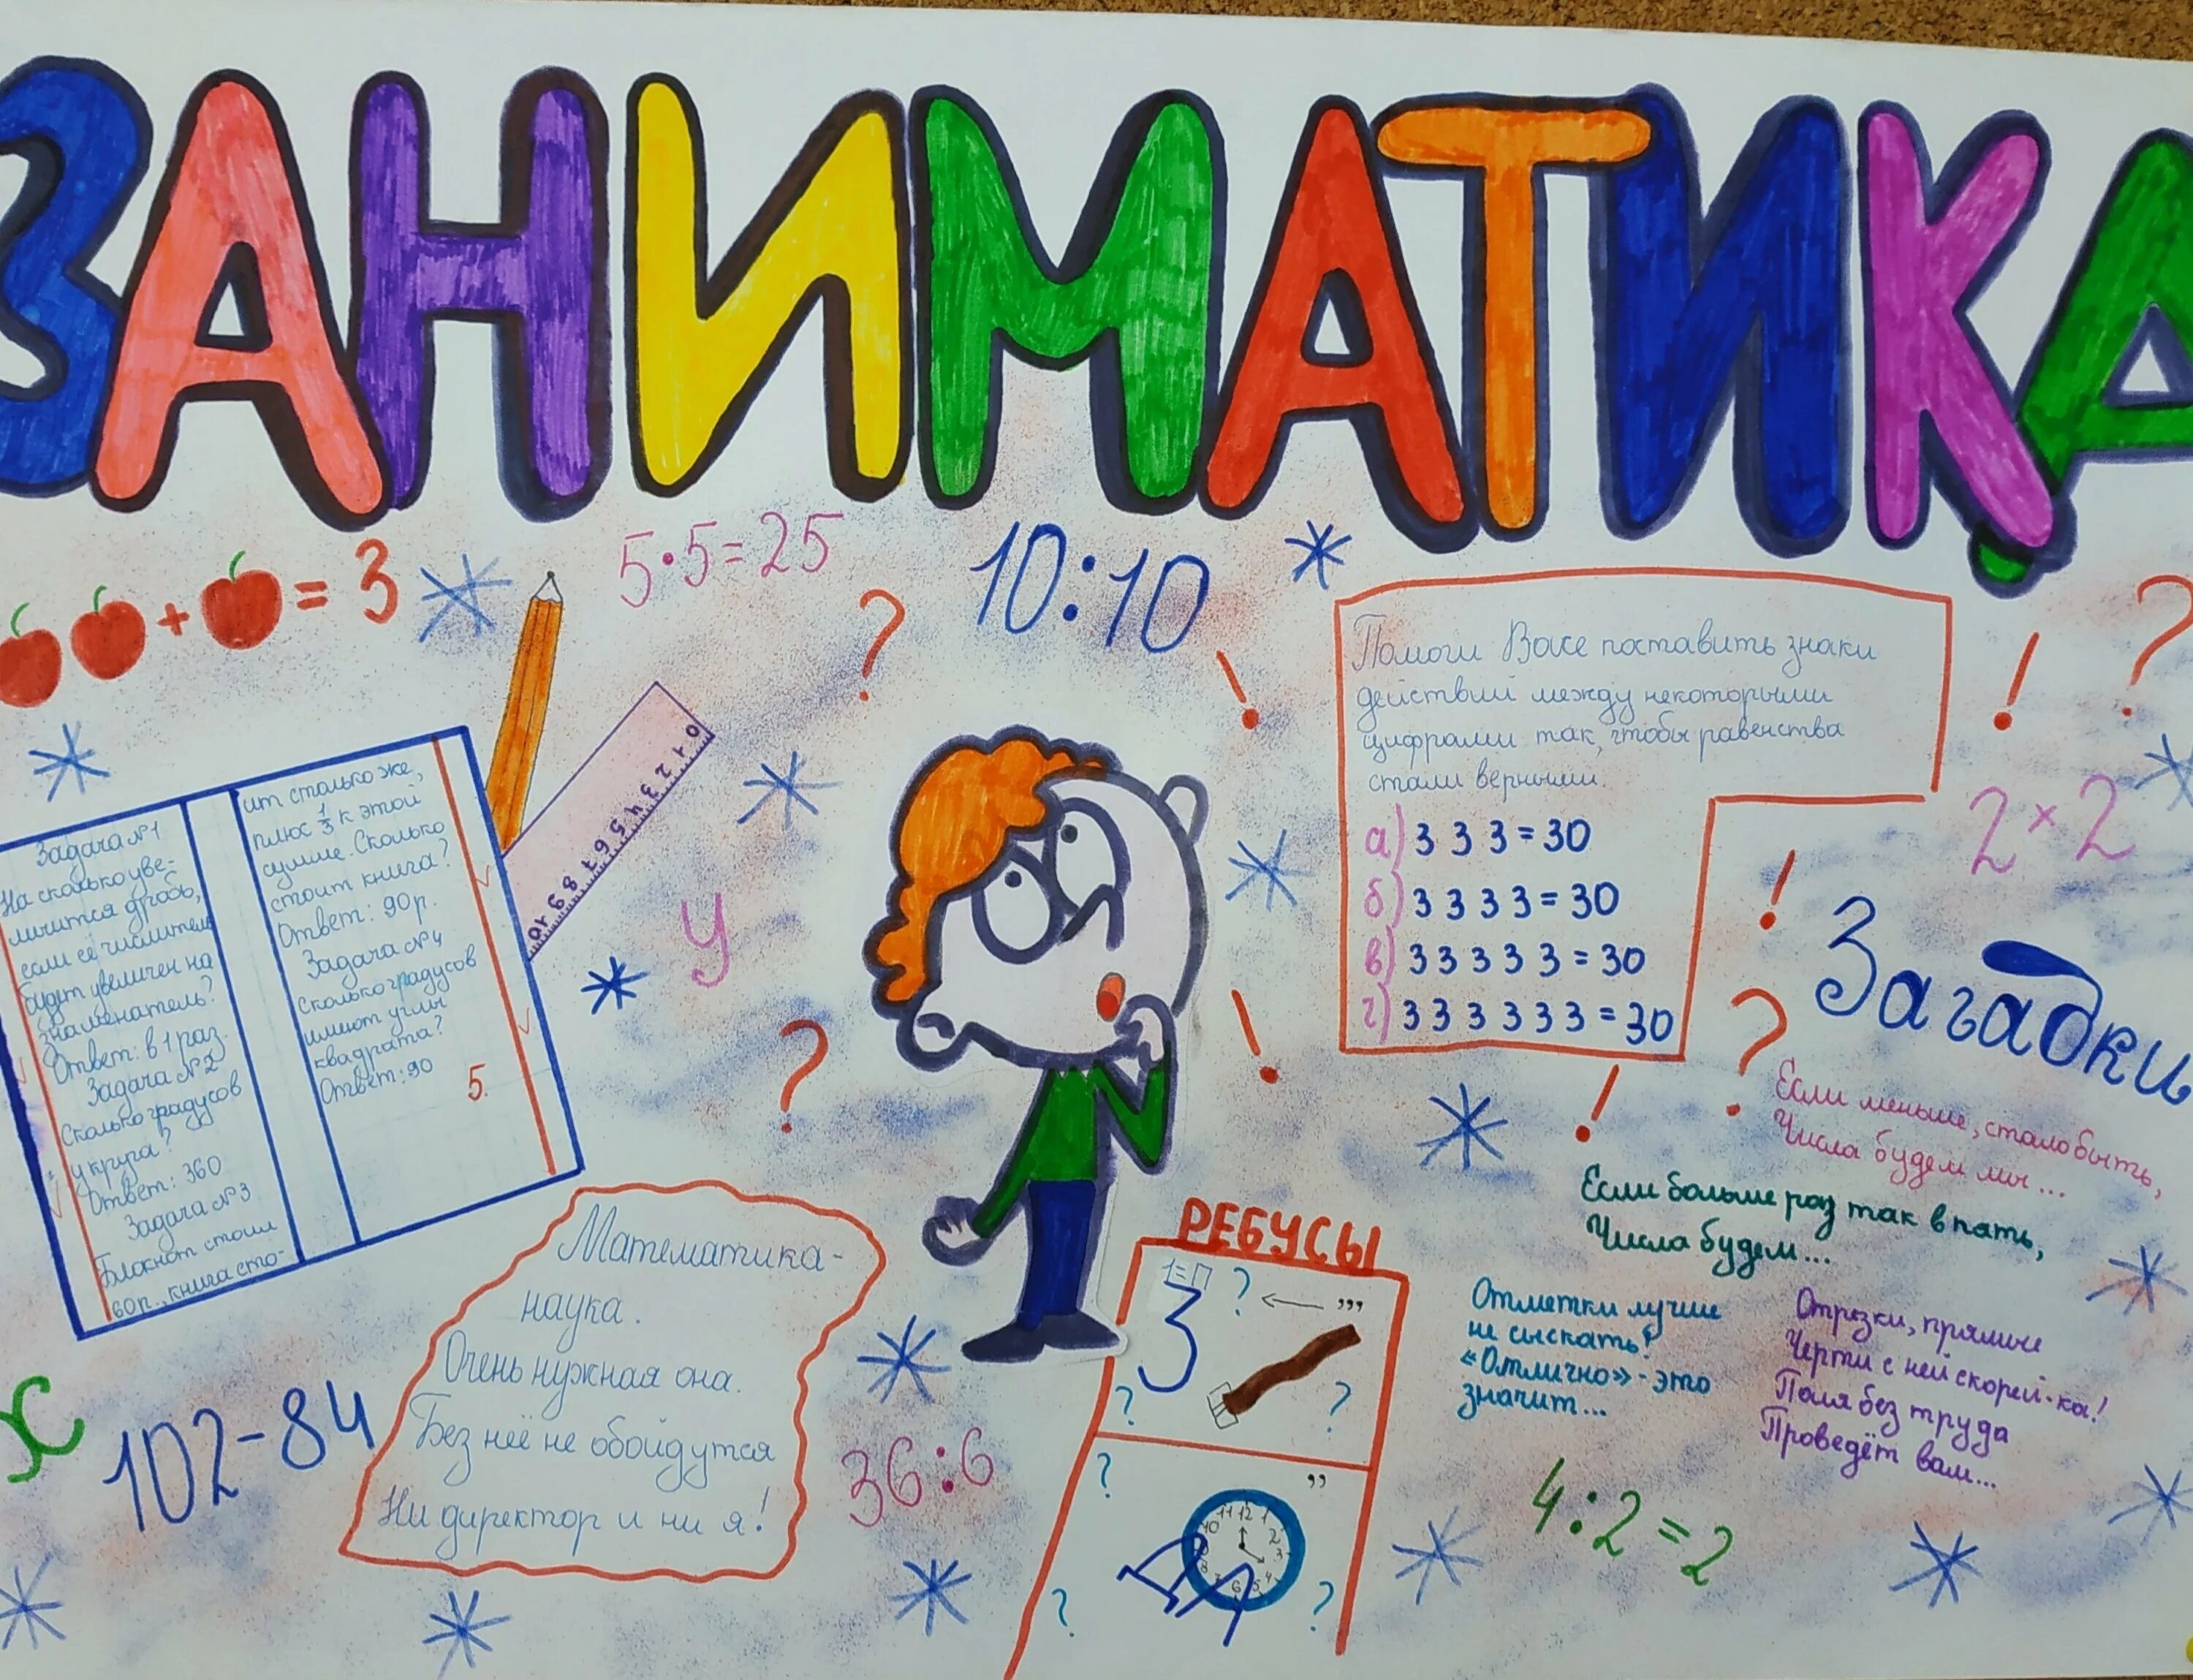 ЗАНИМАТИКА
+ = 3
5·5=25
10:10
Помоги Васе поставить знаки
действий между некоторыми
цифрами так, чтобы равенства
стали верными.
а) 3 3 3 = 30
б) 3 3 3 3 = 30
в) 3 3 3 3 3 = 30
г) 3 3 3 3 3 3 = 30
0 1 2 3 4 5 6 7 8 9 10
Задача №1
На сколько уве-
личится дробь,
если её числитель
будет увеличен на
знаменатель?
Ответ: в 1 раз.
Задача №2
Сколько градусов
у круга?
Ответ: 360
Задача №3
Блокнот стоил
60 р., книга сто-
ит столько же,
плюс 1/3 к этой
сумме. Сколько
стоит книга?
Ответ: 90 р.
Задача №4
Сколько градусов
имеют углы
квадрата?
Ответ: 90
5.
у
2×2
Загадки
Если меньше, стало быть,
Числа будем мы...
Если больше раз так в пать,
Числа будем...
Отметки лучше
не сыскать!
«Отлично» - это
значит...
Отрезки, прямые
Черти с ней скорей-ка!
Поля без труда
Проведёт вам...
4:2=2
Математика-
наука.
Очень нужная она.
Без неё не обойдутся
Ни директор и ни я!
х
102-84
36:6
РЕБУСЫ
1=П
? ← ,,,
3
? ?
? ,,
11 12 1
10 2
9 3
8 4
7 6 5
? ?